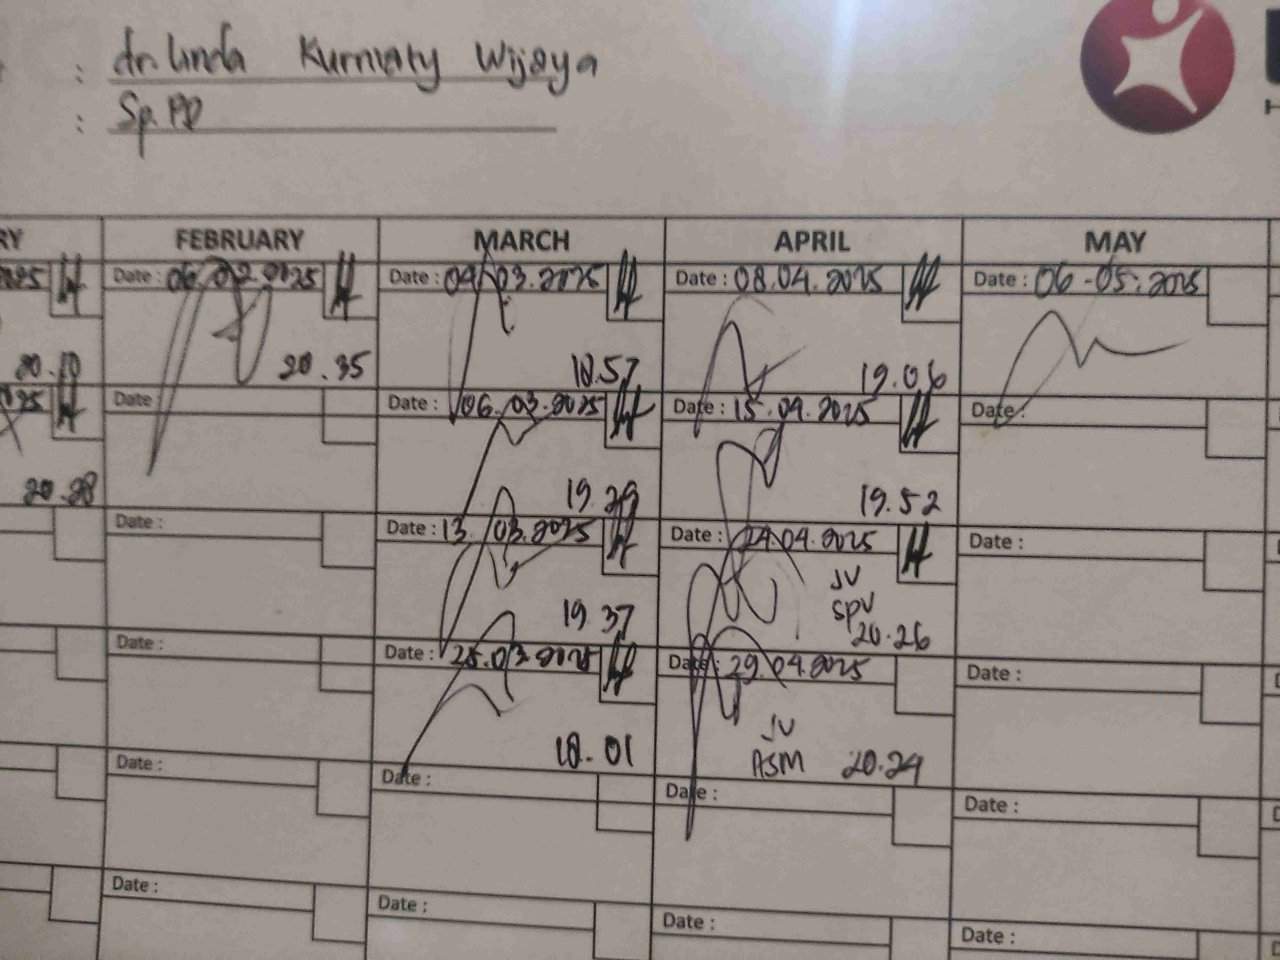 : dr. Linda Kurniaty Wijaya
: Sp.PD
RY FEBRUARY MARCH APRIL MAY
Date : 06.02.2025 Date : 04.03.2025 Date : 08.04.2025 Date : 06-05.2025
20.10 20.35 18.57 19.06
Date Date : 06.03.2025 Date : 15.04.2025 Date :
20.28 19.29 19.52
Date : Date : 13.03.2025 Date : 24.04.2025 Date :
JV
SPV
19.37 20.26
Date : Date : 25.03.2025 Date : 29.04.2025 Date :
JV
18.01 ASM 20.24
Date : Date : Date : Date :
Date : Date : Date : Date :